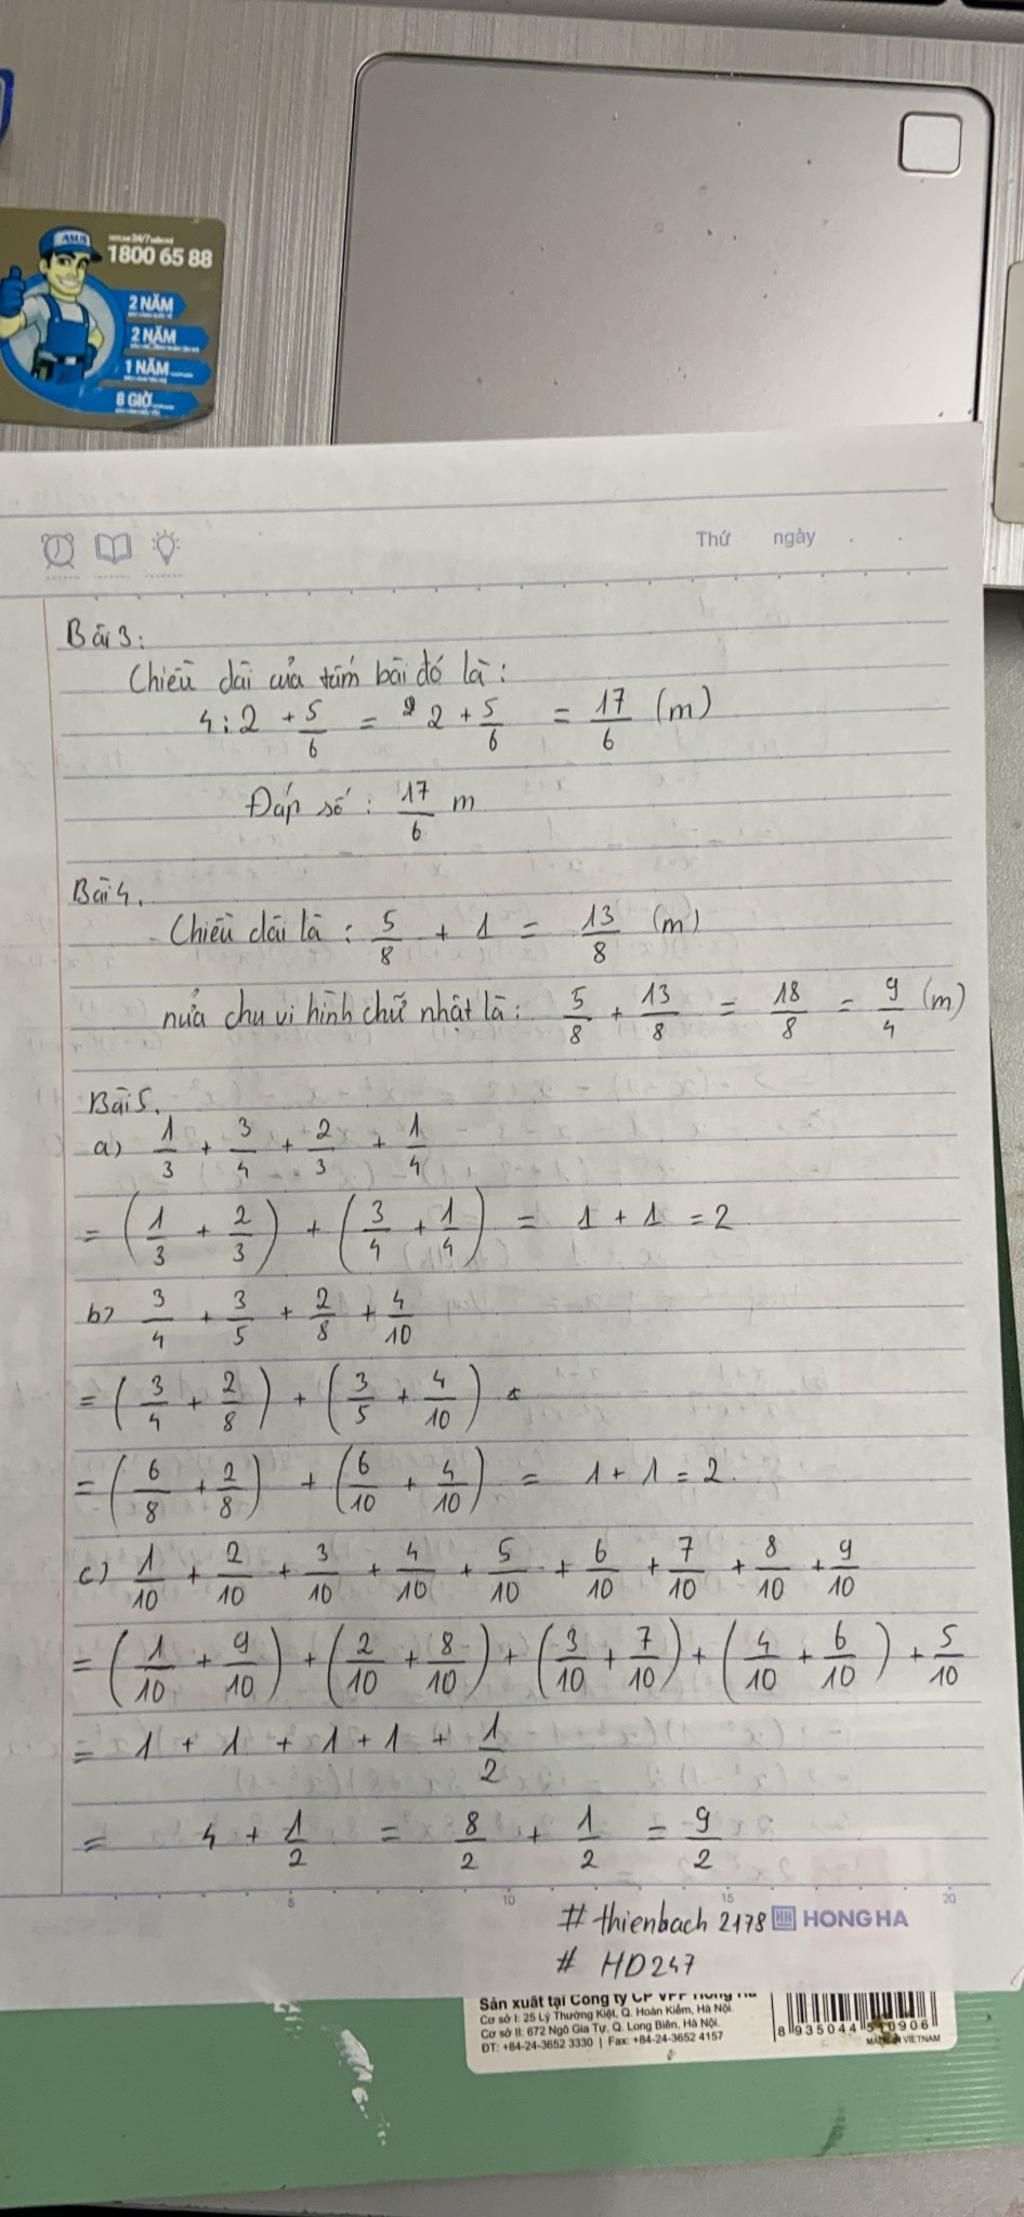 ASUS
1800 65 88
2 NĂM
2 NĂM
1 NĂM
8 GIỜ
Thứ ngày
Bài 3:
Chiều dài của tấm bài đó là:
4:2 + 5/6 = 2 + 5/6 = 17/6 (m)
Đáp số: 17/6 m
Bài 4.
Chiều dài là : 5/8 + 1 = 13/8 (m)
nửa chu vi hình chữ nhật là: 5/8 + 13/8 = 18/8 = 9/4 (m)
Bài 5.
a) 1/3 + 3/4 + 2/3 + 1/4
= (1/3 + 2/3) + (3/4 + 1/4) = 1 + 1 = 2
b) 3/4 + 3/5 + 2/8 + 4/10
= (3/4 + 2/8) + (3/5 + 4/10)
= (6/8 + 2/8) + (6/10 + 4/10) = 1 + 1 = 2.
c) 1/10 + 2/10 + 3/10 + 4/10 + 5/10 + 6/10 + 7/10 + 8/10 + 9/10
= (1/10 + 9/10) + (2/10 + 8/10) + (3/10 + 7/10) + (4/10 + 6/10) + 5/10
= 1 + 1 + 1 + 1 + 1/2
= 4 + 1/2 = 8/2 + 1/2 = 9/2
5 10 15 20
# thienbach 2178 HH HONG HA
# HD247
Sản xuất tại Công ty CP VPP Hồng Hà
Cơ sở I: 25 Lý Thường Kiệt, Q. Hoàn Kiếm, Hà Nội.
Cơ sở II: 672 Ngô Gia Tự, Q. Long Biên, Hà Nội.
ĐT: +84-24-3652 3330 | Fax: +84-24-3652 4157
8 935044 510906
MADE IN VIETNAM